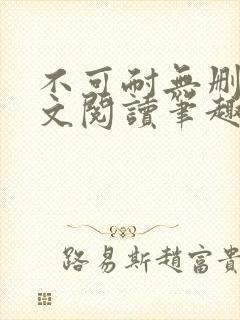 不可耐無删
文閱讀筆趣
路易斯趙富貴